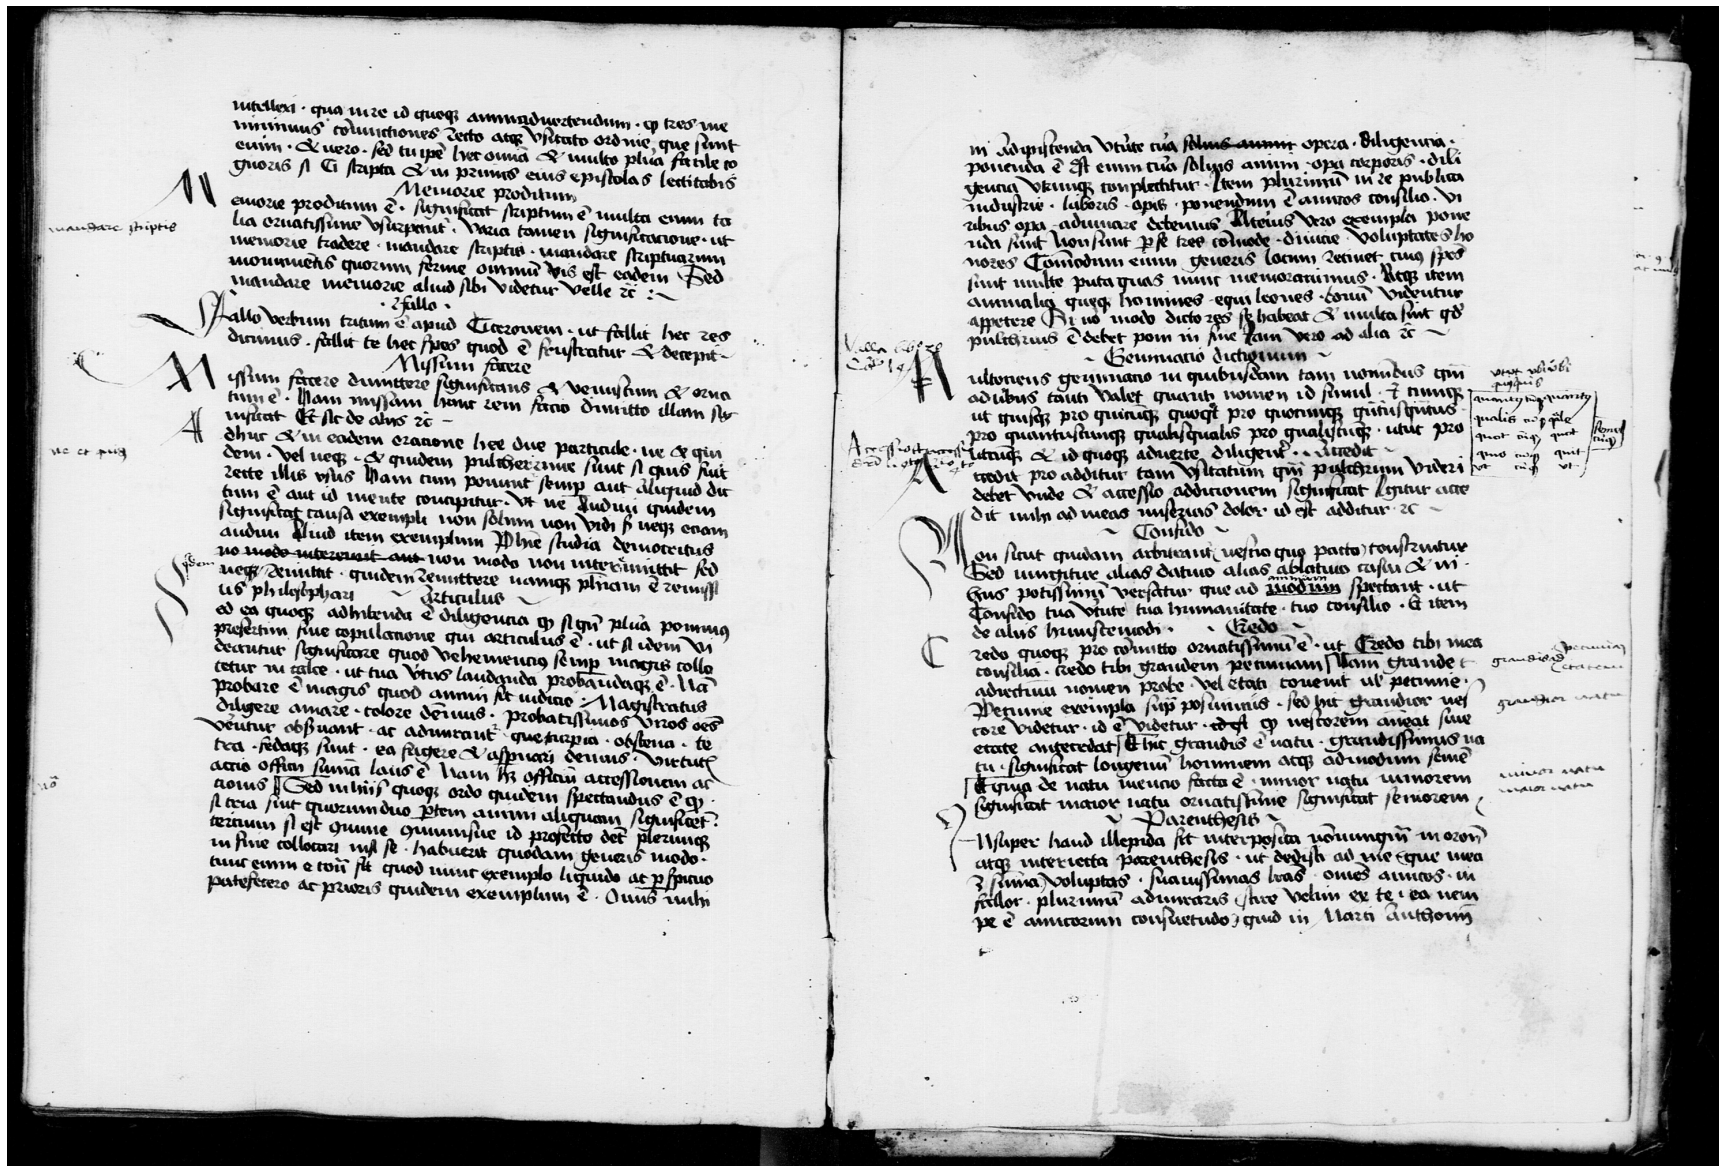 intellexi · qua in re id quoqꝫ animaduertendum · ꝙ tres me
minimus cōiunctiones recto atqꝫ vsitato ordine que sunt
enim · & vero · sed tu ipē hec omīa & multo plura facile co
gnoris si Ci scripta & in primis eius epistolas lectitabis
Memorie proditum
Memorie proditum ē · significat scriptum ē multa enim ta
lia ornatissime vsurpant̄ · varia tamen significacione · ut
memorie tradere · mandare scriptis · mandare scripturarum
monumētis quorum ferme omniū vis est eadem Sed
mandare memorie aliud sibi videtur velle ꝛc̄
· Fallo ·
Fallo verbum tritum ē apud Ciceronem · ut fallit hec res
dicimus · fallit te hec spes quod ē frustratur & decepit
Missum facere
Missum facere dimittere significans & venustum & orna
tum ē · Nam missam hanc rem facio dimitto illam sig
nificat Et sic de aliis ꝛc̄
Adhuc & in eadem oracione hee due particule · ne & qui
dem · vel neqꝫ · & quidem pulcherrime sunt si quis scit
recte illis vsus Nam cum ponunt semp̄ aut aliquid dic
tum ē aut id mente concipitur · Vt ne Audiui quidem
significat causa exempli non solum non vidi sꝫ neqꝫ eciam
audiui Aliud item exemplum Phīe studia democritus
no modo intermisit aut non modo non intermittit sed
neqꝫ remittit · quidem remittere namqꝫ ph̄icam ē remiss
ius philosophari Articulus
Sed ea quoqꝫ adhibenda ē diligencia ꝙ si qn̄ plura ponimꝰ
presertim sine copulacione qui articulus ē · ut si idem vi
deantur significare quod vehemencius semp̄ magis collo
cetur in calce · ut tua v̄tus laudanda probandaqꝫ ē · Nā
probare ē magis quod animi sit iudicio · Magistratus
diligere amare · colore dēmus · probatissimos viros oēs
venerītur obseruant · ac admirant̄ · que turpia · obscena · te
tra · fedaqꝫ sunt · ea fugere & aspernari demus · Virtutꝭ
accio officii summa laus ē Nam hꝫ officiū accessionem ac
cionis Sed in hiis quoqꝫ ordo quidem spectandus ē ꝙ
si tria sint quorum duo p̄tem animi aliquam significēt ·
tercium si est
in fine collocari nisi se · habuerit quodam generis modo ·
tunc enim e cōtra fit quod nunc exemplo liquido ac p̄spicuo
patefecero ac prioris quidem exemplum ē · Omīs mihi
mandare scriptis
ne et quiꝫ
in adipiscenda v̄tute cura solius animi opera · diligencia ·
ponenda ē Est enim cura solius animi · opa corporis · dili
gencia vtrunqꝫ complectitur · Item plurimū in re publica
industrie · laboris · opis · ponendum ē amicos consilio · vi
ribus opa · adiuuare debemus Alterius vero exempla pone
nda sunt hon sunt p̄ se tres cōmode · diuicie · voluptates ho
nores Comodum enim generis locum retinet cuiꝰ sp̄es
sunt multe puta quas nunc memorauimus · Atqꝫ item
animalia queqꝫ homines equi leones · bonū videntur
appetere Si no modo dicto res se habeat & multa sint qd̄
pulchrius ē debet poni in fine Iam vero ad alia ꝛc̄
Geminacio dictionum
Multociens geminacio in quibusdam tam nominibus qm̄
aduerbiis tanti valet quanti nomen id simul · & cunqꝫ
ut quisqꝫ pro quicūqꝫ quotqt̄ pro quotcunqꝫ quātusquātus
pro quantuscunqꝫ qualisqualis pro qualiscūqꝫ · utut pro
utcūqꝫ & id quoqꝫ aduerte diligent̄ · Accedit
Accedit pro additur tam vsitatum qm̄ pulchrum videri
debet vnde & accessio addicionem significat Igitur acce
dit mihi ad meas miserias dolor id est additur · ꝛc̄
Confido
Non sicut quidam arbitrant̄ nescio quo pacto construitur
Sed iungitur alias datiuo alias ablatiuo casui & in
hiis potissimū versatur que ad modum animum spectant · ut
Confido tua v̄tute tua humanitate · tuo consilio · & item
de aliis huiuscemodi · Credo
Credo quoqꝫ pro cōmitto ornatissimū ē · ut Credo tibi mea
consilia · credo tibi grandem pecuniam Nam grande t
adiectiuū nomen probe · vel etati cōuenit ul' pecunie ·
Pecunie exempla sup̄ posuimus · sed hic grandior nes
tore videtur · id ē videtur · id est ꝙ nestorem aneat siue
etate antecedat Et hic grandis ē natu · grandissimus na
tu · significat longeuū hominem atqꝫ admodum senē
Et quia de natu mencio facta ē · minor natu iuniorem
significat maior natu ornatissime significat seniorem
Parenthesis
Insuper haud illepida sit interposita nōnunqm̄ in orōn
atqꝫ interiecta parenthesis · ut dedisti ad me (que mea
ē summa) voluptas · suauissimas lras · omēs amicos · ni
fallor · plurimū admiraris (scire velim ex te · ea nem
pe ē amicorum consuetudo) quid in Marci Anthonii
Valla libro
quantus cūqꝫ quantꝰ
qualis cūqꝫ qūle
quot cūqꝫ quot
vt cūqꝫ vt
grandis ad pecuniam etatem
grandior natu
minor natu
maior natu